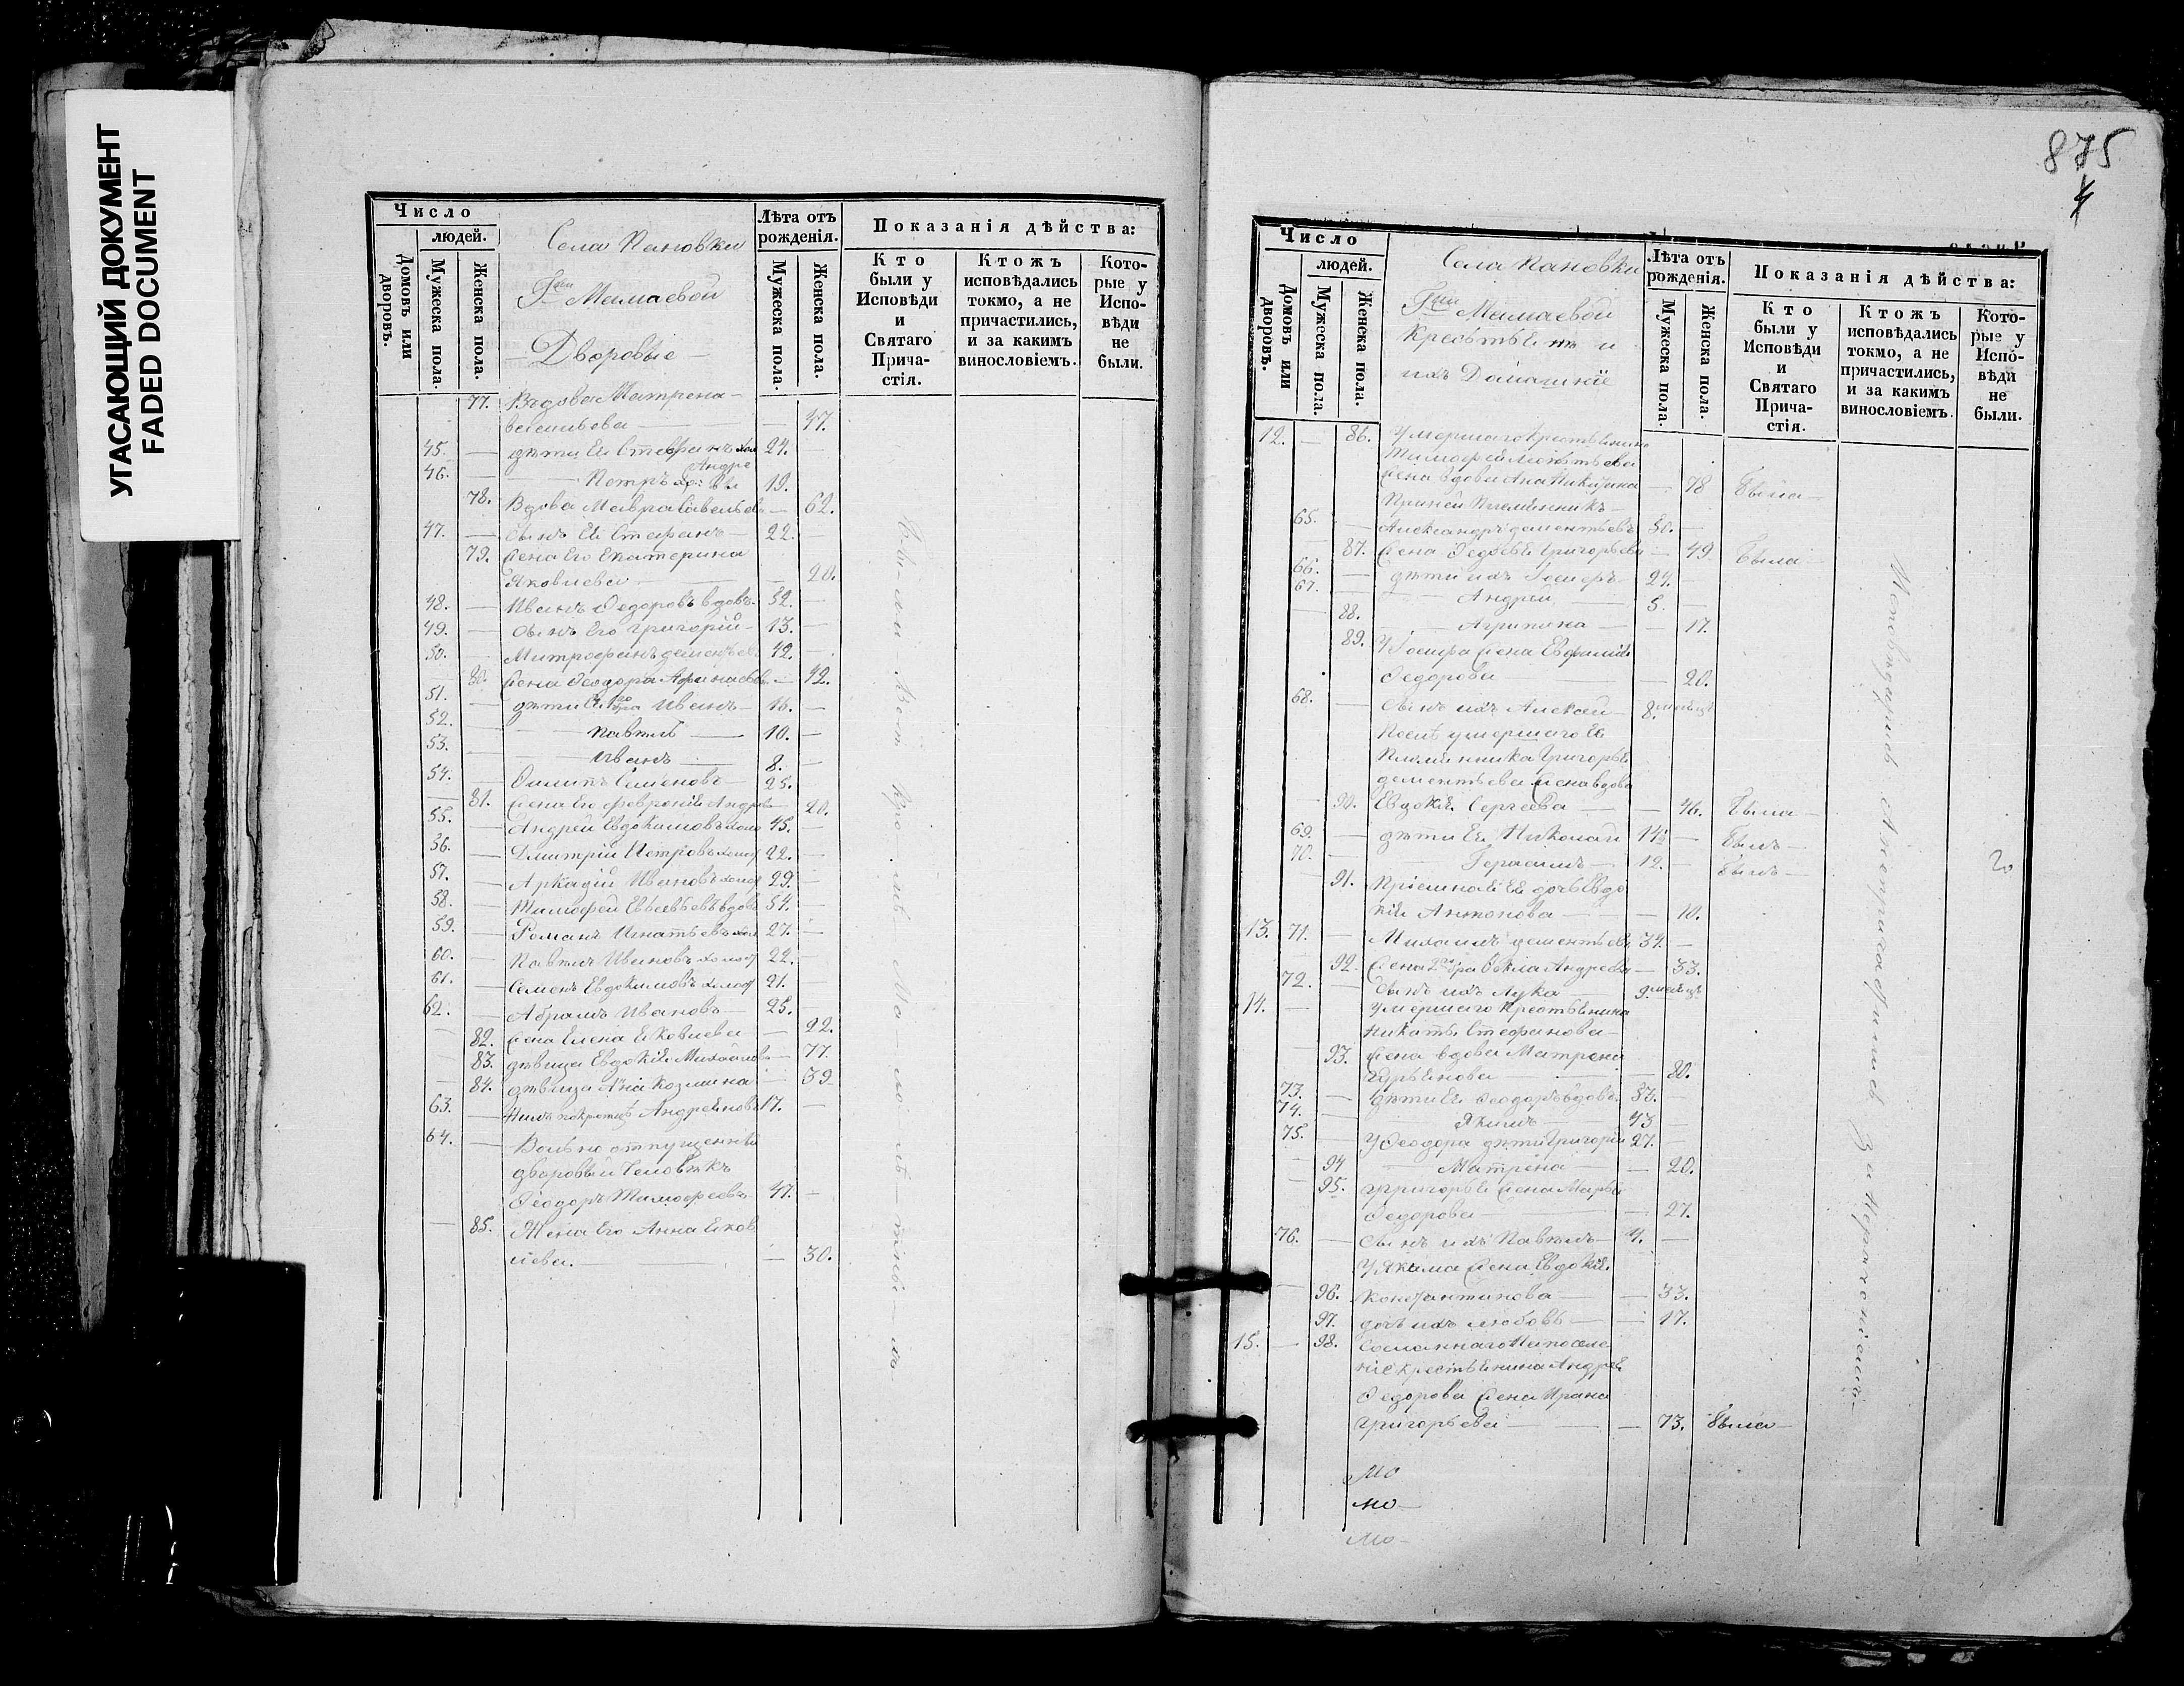 УГАСАЮЩИЙ ДОКУМЕНТ
FADED DOCUMENT
Число
людей.
Домовъ или дворовъ.
Мужеска пола.
Женска пола.
Села Пановки
Г-жи Мамаевой
Дворовые
Лѣта отъ рожденія.
Мужеска пола.
Женска пола.
Показанія дѣйства:
Кто были у Исповѣди и Святаго Причастія.
Ктожъ исповѣдались токмо, а не причастились, и за какимъ винословіемъ.
Которые у Исповѣди не были.
77. Вдова Матрена
47.
45. дѣти Ея Стефанъ хол 24.
46. Петръ Андре 19.
78. Вдова Мавра Савельева 62.
47. сынъ Ея Стефанъ 22.
79. Жена Его Екатерина
Яковлева 20.
48. Иванъ Федоровъ вдовъ 52.
49. сынъ Его Григорій 13.
50. Митрофанъ Дементьев 42.
80. Жена Феодора Афанасьева 42.
51. дѣти Иванъ 16.
52. Павелъ 10.
53. Иванъ 8.
54. Филипъ Семеновъ 25.
81. Жена Его Февронія Андрее 20.
55. Андрей Евдокимовъ холо 45.
56. Дмитрій Петровъ холо 22.
57. Аркадій Ивановъ холо 29.
58. Тимофей Евсевьевъ вдовъ 54.
59. Романъ Игнатьевъ хол 27.
60. Павелъ Ивановъ холо 22.
61. Семенъ Евдокимовъ холо 21.
62. Абрамъ Ивановъ 25.
82. Жена Елена Яковлева 22.
83. дѣвица Евдокія Михайлова 77.
84. дѣвица Анна Козмина 39
63. Андреяновъ 17.
64. Вольно отпущенный
дворовый Человѣкъ
Феодоръ Тимофеевъ 47.
85. Жена Его Анна Яков
лева. 30.
875
Число
людей.
Домовъ или дворовъ.
Мужеска пола.
Женска пола.
Села Пановки
Г-жи Мамаевой
Крестьяне и
ихъ Домашніе
Лѣта отъ рожденія.
Мужеска пола.
Женска пола.
Показанія дѣйства:
Кто были у Исповѣди и Святаго Причастія.
Ктожъ исповѣдались токмо, а не причастились, и за какимъ винословіемъ.
Которые у Исповѣди не были.
12. 86. Умершаго Крестьянина
Тимофея
Жена вдова Анна Никитина 78 была
При ней Племянникъ
65. Александръ Дементьевъ 50.
87. Жена Федосья Григорьева 49 была
66. дѣти ихъ Іосифъ 24.
67. Андрей 5.
88. Агрипина 17.
89. У Іосифа Жена Евфимія
Федорова 20.
68. сынъ ихъ Алексей 8. месяц
После умершаго Ея
племянника Григорья
Дементьева Жена вдова
90. Евдокія Сергеева 46. была
69. дѣти Ея Николай 14 былъ
70. Герасимъ 12. былъ
91. Пріемная Ея дочь Евдо
кія Антонова 10.
13. 71. Михаилъ Дементьевъ 34.
92. Жена 2 бра Фекла Андреева 33.
72. сынъ ихъ Лука 9. месяц
14. Умершаго Крестьянина
Никаты Стефанова
93. Жена вдова Матрена
80.
73. дѣти Ея Феодоръ вдовъ 53.
74. Якимъ 43
75. У Феодора дѣти Григорій 27.
94 Матрена 20.
95. Григорья Жена Марья
Федорова 27.
76. сынъ ихъ Павелъ 4.
У Якима Жена Евдокія
96. Константинова 33.
97. дочь ихъ Любовь 17.
15. 98. Сосланнаго На поселе
ніе крестьянина Андрея
Федорова Жена Ирина
Григорьева 73. была